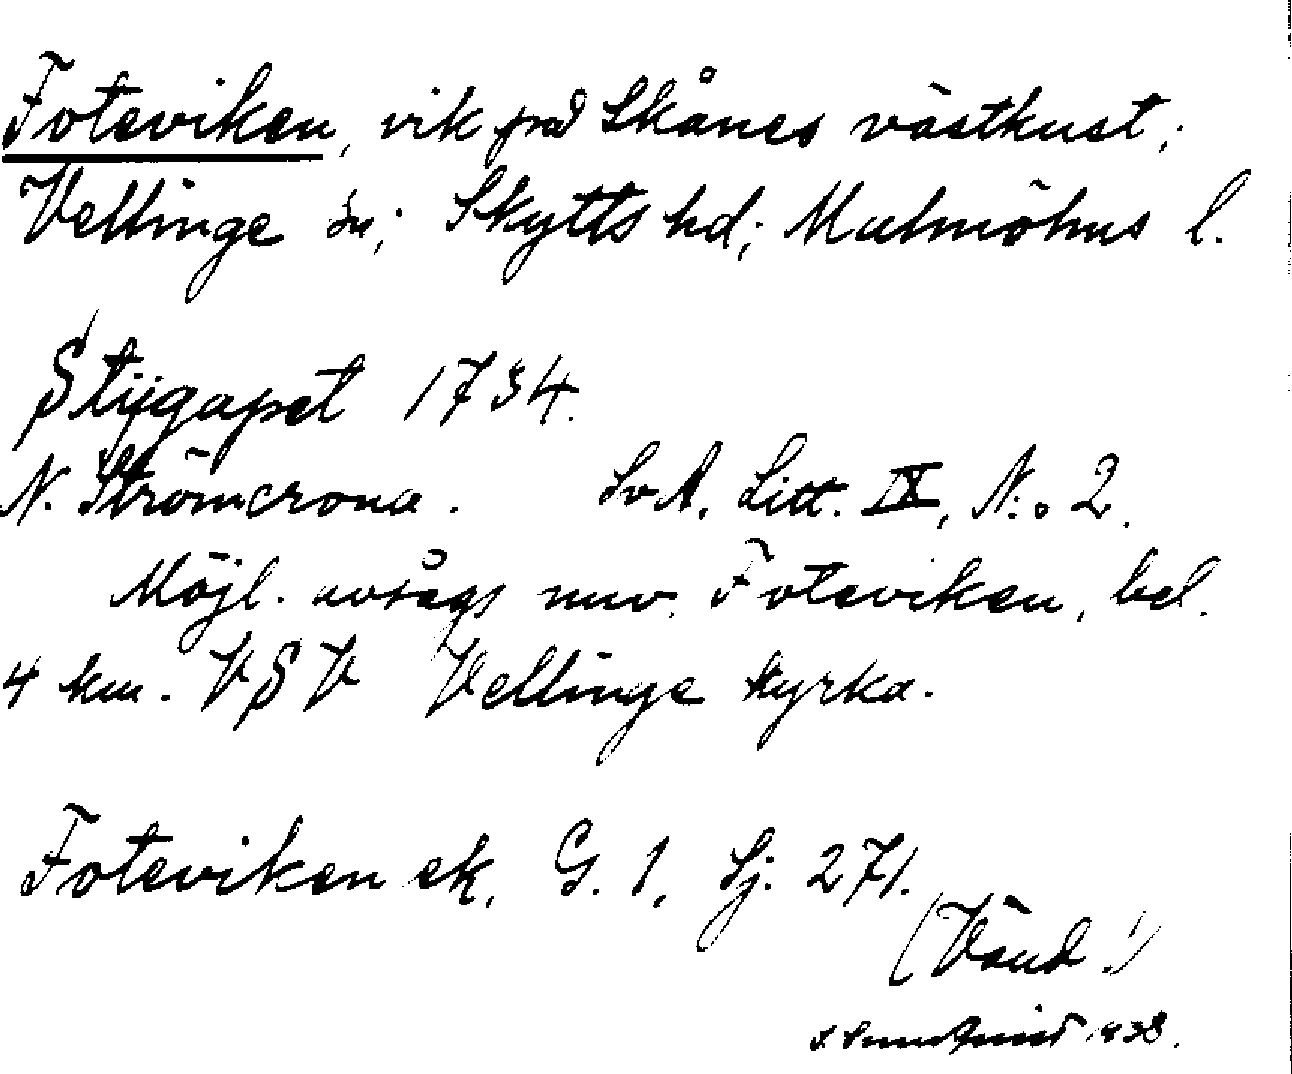 Foteviken, vik på Skånes västkust;
Vellinge sn; Skytts hd; Malmöhus l.
Stijgapet 1734.
N. Strömcrona. SvA. Litt. IX, N:o 2.
Möjl. avsågs nuv. Foteviken, bel.
4 km. VSV Vellinge kyrka.
Foteviken ek, G. 1, Sj. 271.
(Vänd!)
1938.